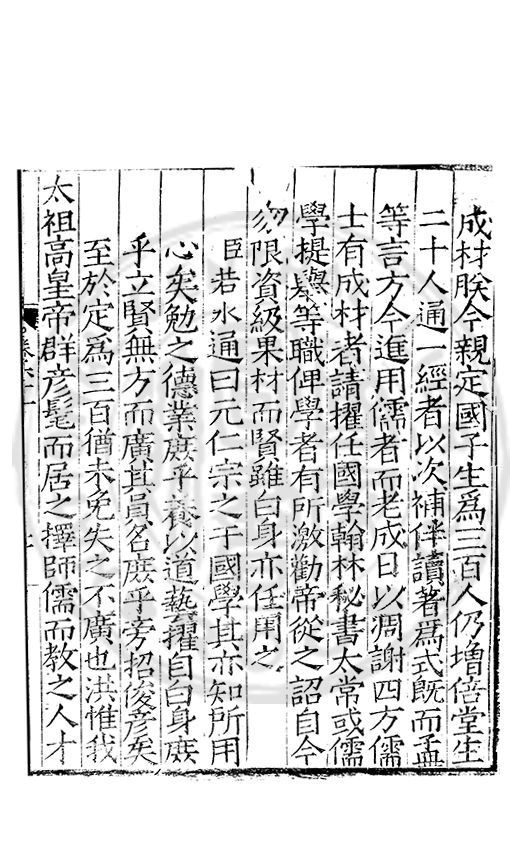 成材朕今親定國子生爲三百人仍增倍堂生
二十人通一經者以次補伴讀著爲式既而孟
等言方今進用儒者而老成日以凋謝四方儒
士有成材者請擢任國學翰林秘書太常或儒
學提舉等職俾學者有所激勸帝從之詔自今
勿限資級果材而賢雖白身亦任用之
臣若水通曰元仁宗之于國學其亦知所用
心矣勉之德業庶乎養以道藝擢自白身庶
乎立賢無方而廣其員名庶乎旁招俊彦矣
至於定爲三百猶未免失之不廣也洪惟我
太祖高皇帝群彦髦而居之擇師儒而教之人才